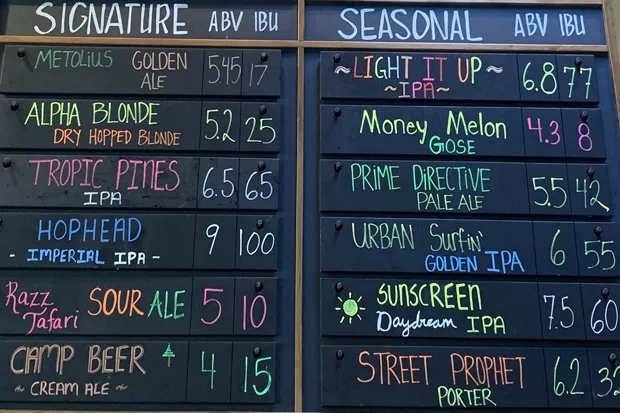 SIGNATURE ABV IBU
METOLIUS GOLDEN ALE 5.45 17
ALPHA BLONDE 5.2 25
DRY HOPPED BLONDE
TROPIC PINES 6.5 65
IPA
HOPHEAD 9 100
- IMPERIAL IPA -
Razz Tafari SOUR ALE 5 10
CAMP BEER 4 15
~ CREAM ALE ~
SEASONAL ABV IBU
~LIGHT IT UP~ 6.8 77
~IPA~
Money Melon 4.3 8
GOSE
PRIME DIRECTIVE 5.5 42
PALE ALE
URBAN Surfin' 6 55
GOLDEN IPA
SUNSCREEN 7.5 60
Daydream IPA
STREET PROPHET 6.2 32
PORTER